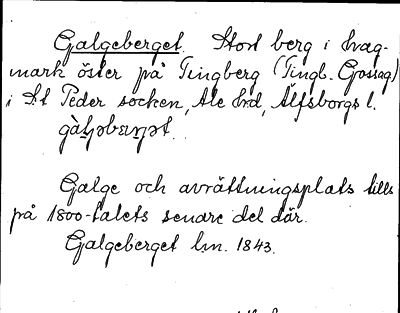 Galgeberget. Stort berg i Kvag-
mark öster på Tingberg (Tingb. Gossag)
i S:t Peder socken, Ale hd, Älfsborgs l.
Galge och avrättningsplats tills
på 1800-talets senare del där.
Galgeberget lm. 1843.